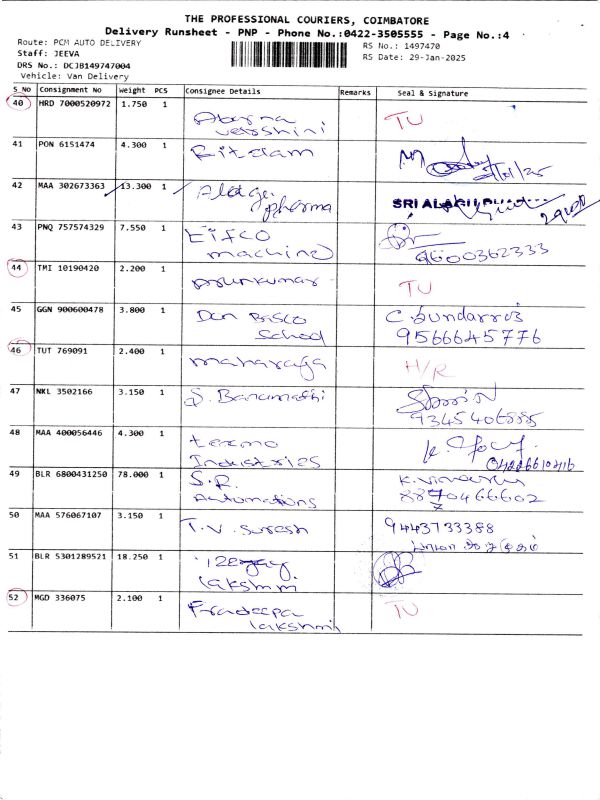 THE PROFESSIONAL COURIERS, COIMBATORE
Delivery Runsheet - PNP - Phone No.:0422-3505555 - Page No.:4
Route: PCM AUTO DELIVERY
Staff: JEEVA
DRS No.: DCJB149747004
Vehicle: Van Delivery
RS No.: 1497470
RS Date: 29-Jan-2025
S_No Consignment No Weight PCS Consignee Details Remarks Seal & Signature
40 HRD 7000520972 1.750 1 Abarna varshini TU
41 PON 6151474 4.300 1 Ritdam
42 MAA 302673363 13.300 1 Alagar pharma SRI ALAGII
43 PNQ 757574329 7.550 1 Eifco machine 9600362333
44 TMI 10190420 2.200 1 Arunkumar TU
45 GGN 900600478 3.800 1 Don Bosco School C. Sundarraj
9566645776
46 TUT 769091 2.400 1 maharaja H/R
47 NKL 3502166 3.150 1 S. Banumathi
9345406885
48 MAA 400056446 4.300 1 texmo Industries
04226610416
49 BLR 6800431250 78.000 1 S.R. Automations
8870466602
50 MAA 576067107 3.150 1 T.V. Suresh 9443733388
51 BLR 5301289521 18.250 1 lakshmi
52 MGD 336075 2.100 1 Pradeepa lakshmi TU